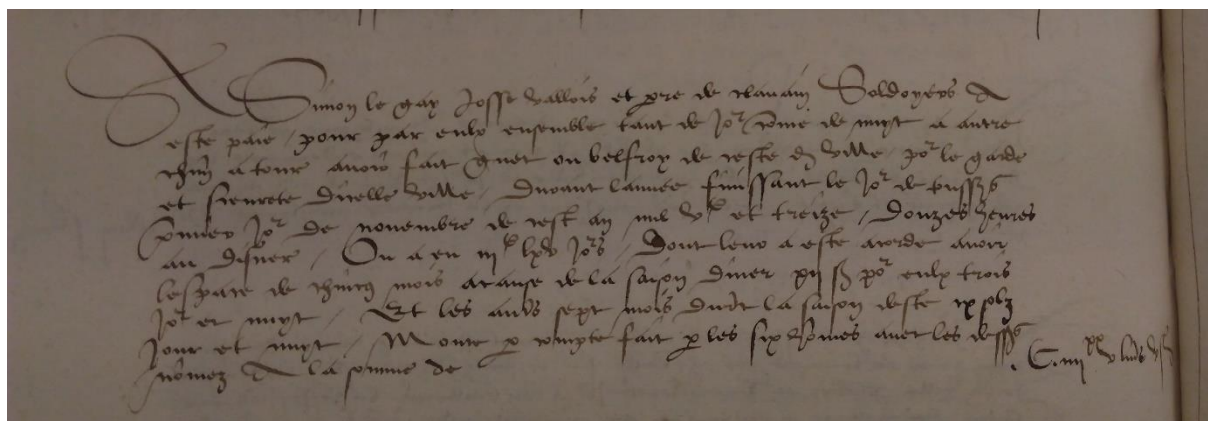 A Simon le gay Josse Vallois et pre de clauain Soldoyers A
este paié / pour par eulx ensemble tant de Jor come de nuyt a autre
chun a tour auoir fait guet ou belfroy de ceste d ville por le garde
et seurete dicelle ville / durant lannee finissant le Jor de tousss
premier Jor de nouembre de cest an mil vc et treize / douzes heures
au disner / On a eu iijc lxv Jors / dont leur a este acorde auoir
lespace de chincq mois a cause de la saison diuer xij s por eulx trois
Jor et nuyt / Et les aues sept mois durant la saison deste ix solz
Jour et nuyt / Monte p compte fait p les six homes auec les dess
nomez A la somme de C iiijxx v liures